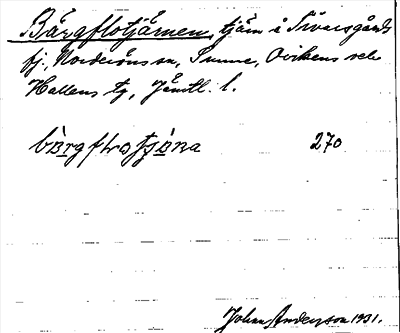 Bärgflotjärnen, tjärn i Sivarsgårds
fj. Norderöns sn, Sunne, Ovikens och
Hallens tg, Jämtl. l.
270
Johan Anderson 1931.